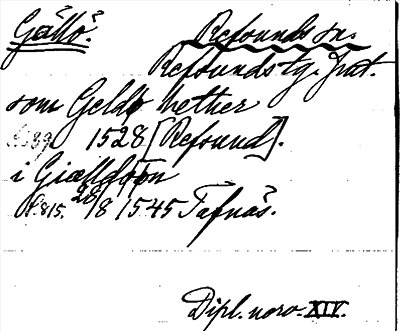 Gällö.
Refounds sn.
Refounds tg. Jmt.
som Geldø hether
1528 [Refound].
i Gialldøøn
N. 815. 28/8 1545 Tafnäs.
Dipl. norv. XIV.